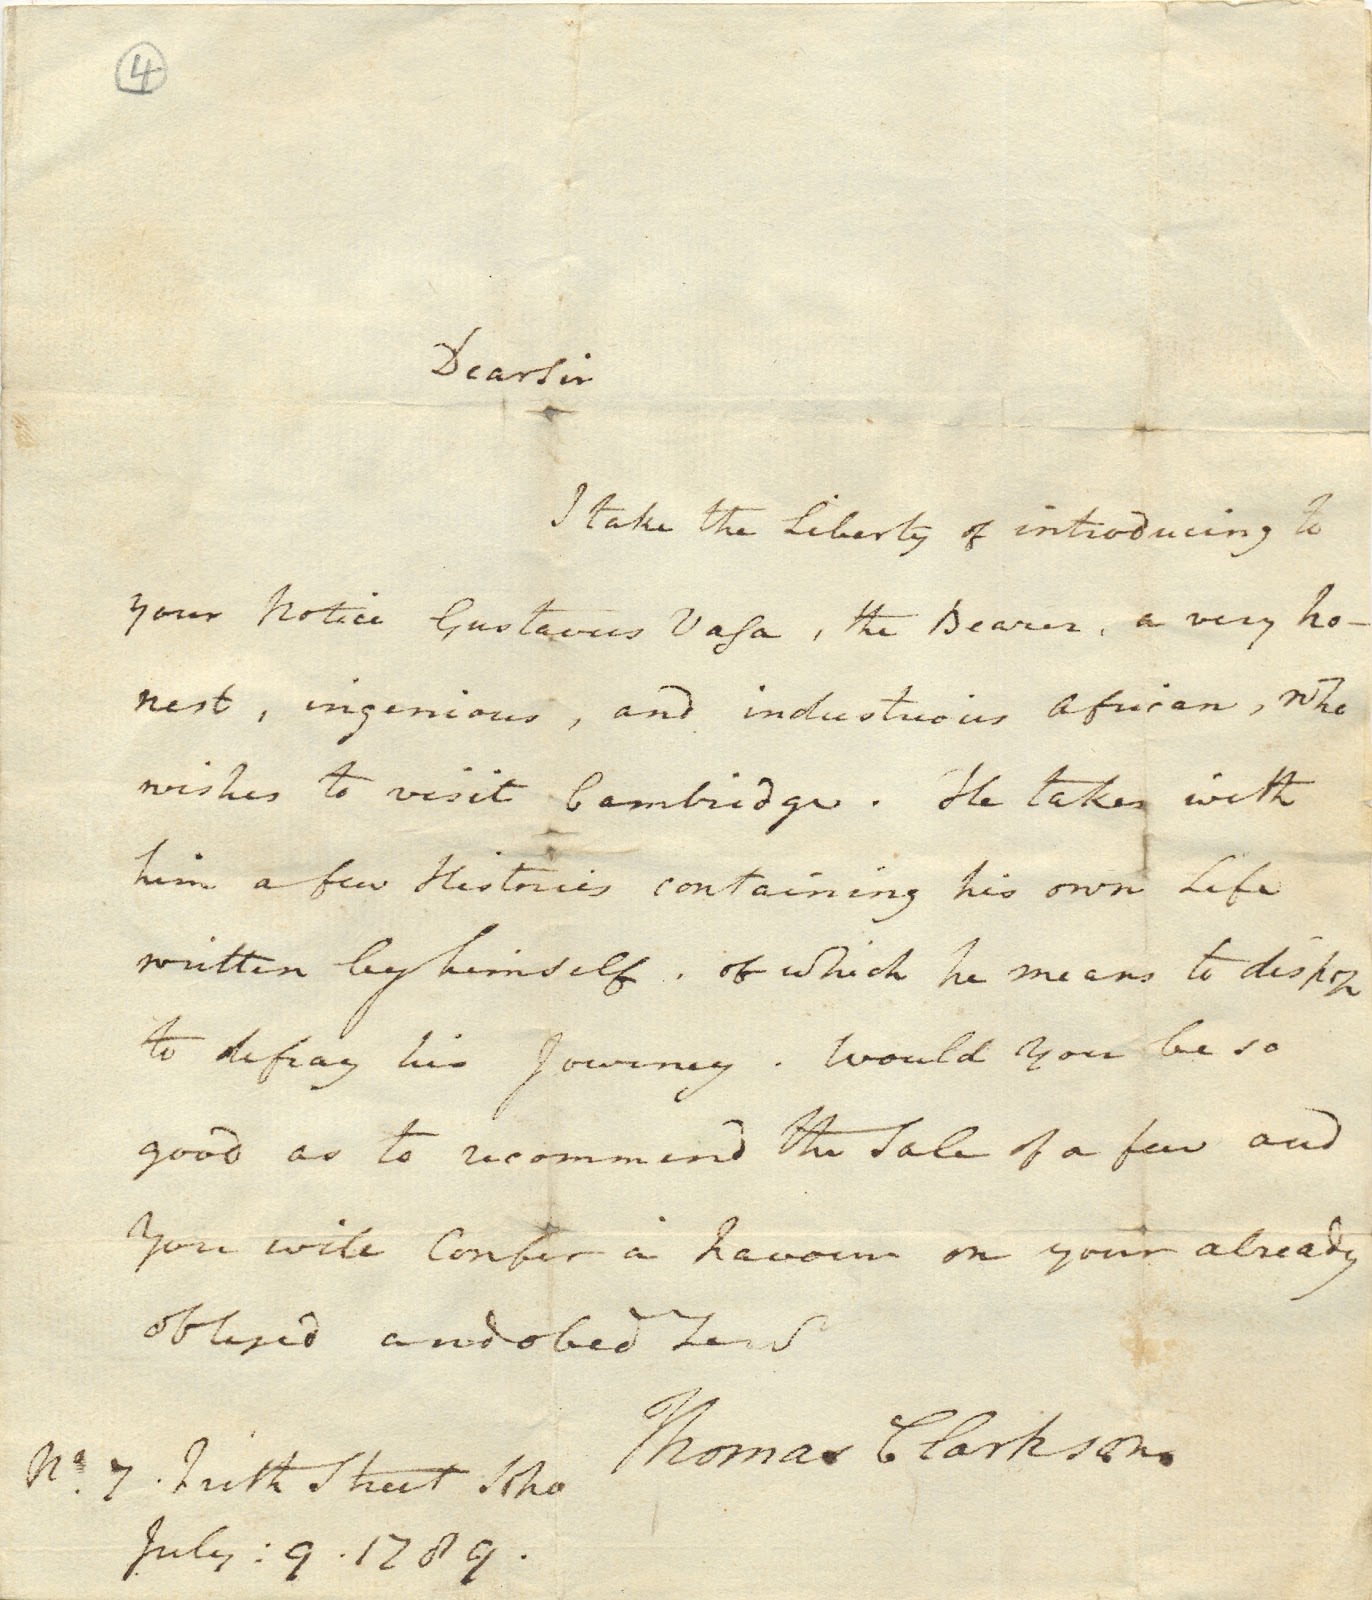 4
Dear Sir
I take the Liberty of introducing to
your Notice Gustavus Vasa, the Bearer, a very ho-
nest, ingenious, and industrious African, who
wishes to visit Cambridge. He takes with
him a few Histories containing his own Life
written by himself, of which he means to dispose
to defray his Journey. Would you be so
good as to recommend the Sale of a few and
you will confer a favour on your already
obliged and obed Serv
Thomas Clarkson.
No. 7. Frith Street Soho
July: 9. 1789.